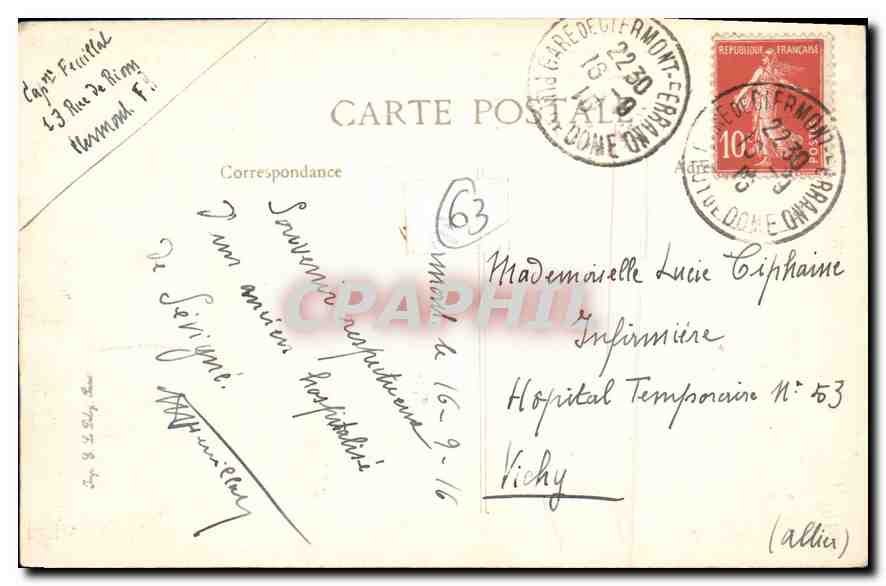 Cap^ne Feuillat
23 Rue de Riom
Clermont F^d
CARTE POSTALE
GARE DE CLERMONT-FERRAND
22 30
16 - 9
16
PUY DE DOME
REPUBLIQUE FRANÇAISE
10
POSTES
GARE DE CLERMONT-FERRAND
22 30
PUY DE DOME
Correspondance
Adres
63
mont le 16-9-16
Souvenir respectueux
d'un ancien hospitalisé
de Sévigné.
Mademoiselle Lucie Tiphaine
Infirmière
Hopital Temporaire N° 53
Vichy
(Allier)
CPAPHIL